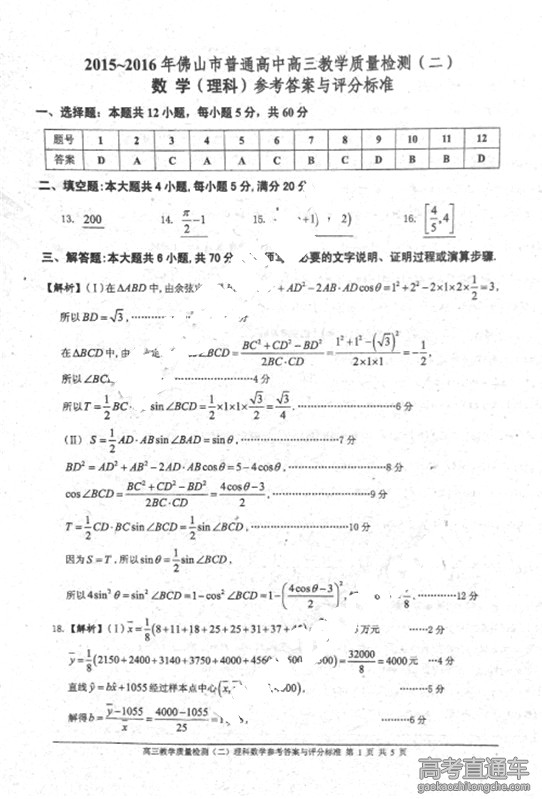 2015~2016年佛山市普通高中高三教学质量检测（二）
数 学（理科）参考答案与评分标准
一、选择题：本题共12小题，每小题5分，共60分
题号 1 2 3 4 5 6 7 8 9 10 11 12
答案 D A C A A C B C D B B D
二、填空题：本大题共4小题，每小题5分，满分20分
13. 200 14. π/2-1 15. +1) 2) 16. [4/5,4]
三、解答题：本大题共6小题，共70分 必要的文字说明、证明过程或演算步骤.
【解析】(Ⅰ)在△ABD中,由余弦 +AD²-2AB·ADcosθ=1²+2²-2×1×2×1/2=3,
所以BD=√3,
在△BCD中, ∠BCD=(BC²+CD²-BD²)/(2BC·CD)=(1²+1²-(√3)²)/(2×1×1)=-1/2,
所以∠BC ……4分
所以T=1/2BC· sin∠BCD=1/2×1×1×√3/2=√3/4. ……6分
(Ⅱ) S=1/2AD·ABsin∠BAD=sinθ. ……7分
BD²=AD²+AB²-2AD·ABcosθ=5-4cosθ. ……8分
cos∠BCD=(BC²+CD²-BD²)/(2BC·CD)=(4cosθ-3)/2. ……9分
T=1/2CD·BCsin∠BCD=1/2sin∠BCD, ……10分
因为S=T,所以sinθ=1/2sin∠BCD,
所以4sin²θ=sin²∠BCD=1-cos²∠BCD=1-((4cosθ-3)/2)², 8. ……12分
18.【解析】(Ⅰ)x̄=1/8(8+11+18+25+25+31+37+ 万元 ……2分
ȳ=1/8(2150+2400+3140+3750+4000+456 500 00)=32000/8=4000元 …4分
直线ŷ=b̂x+1055经过样本点中心(x̄, 00), ……5分
解得b=(ȳ-1055)/x̄=(4000-1055)/25= ……6
高三教学质量检测（二）理科数学参考答案与评分标准 第 1 页 共 5 页
高考直通车
gaokaozhitongche.com